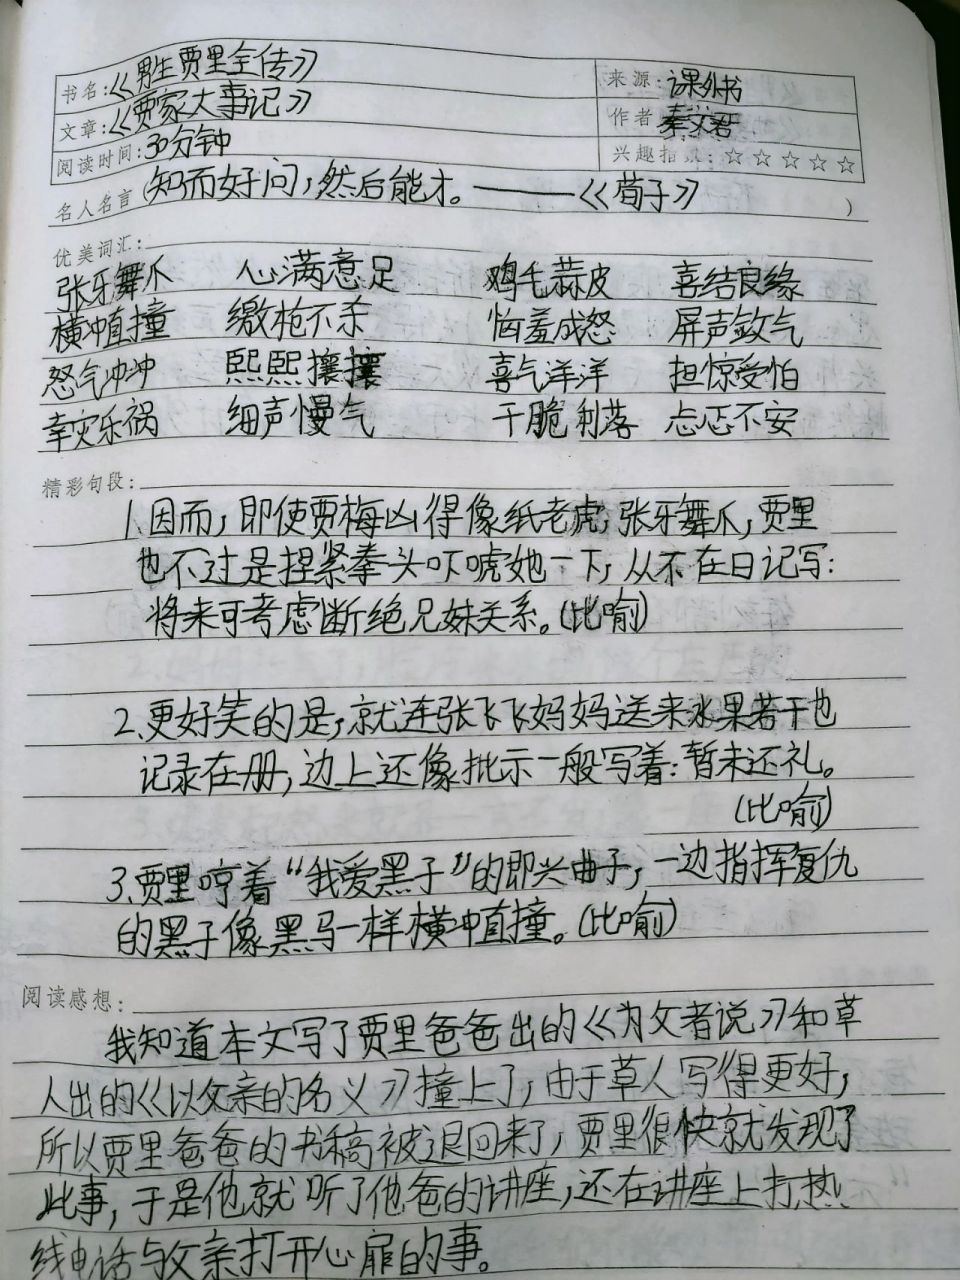 书名:《男生贾里全传》
来源:课外书
文章:《贾家大事记》
作者 秦文君
阅读时间:30分钟
兴趣指数:☆☆☆☆☆
名人名言(知而好问,然后能才。———《荀子》)
优美词汇:
张牙舞爪 心满意足 鸡毛蒜皮 喜结良缘
横冲直撞 缴枪不杀 恼羞成怒 屏声敛气
怒气冲冲 熙熙攘攘 喜气洋洋 担惊受怕
幸灾乐祸 细声慢气 干脆利落 忐忑不安
精彩句段:
1.因而,即使贾梅凶得像纸老虎,张牙舞爪,贾里
也不过是捏紧拳头吓唬她一下,从不在日记写:
将来可考虑断绝兄妹关系。(比喻)
2.更好笑的是,就连张飞飞妈妈送来水果若干也
记录在册,边上还像批示一般写着:暂未还礼。
(比喻)
3.贾里哼着“我爱黑子”的即兴曲子,一边指挥复仇
的黑子像黑马一样横冲直撞。(比喻)
阅读感想:
我知道本文写了贾里爸爸出的《为父者说》和草
人出的《以父亲的名义》撞上了,由于草人写得更好,
所以贾里爸爸的书稿被退回来了,贾里很快就发现了
此事,于是他就听了他爸的讲座,还在讲座上打热
线电话与父亲打开心扉的事。